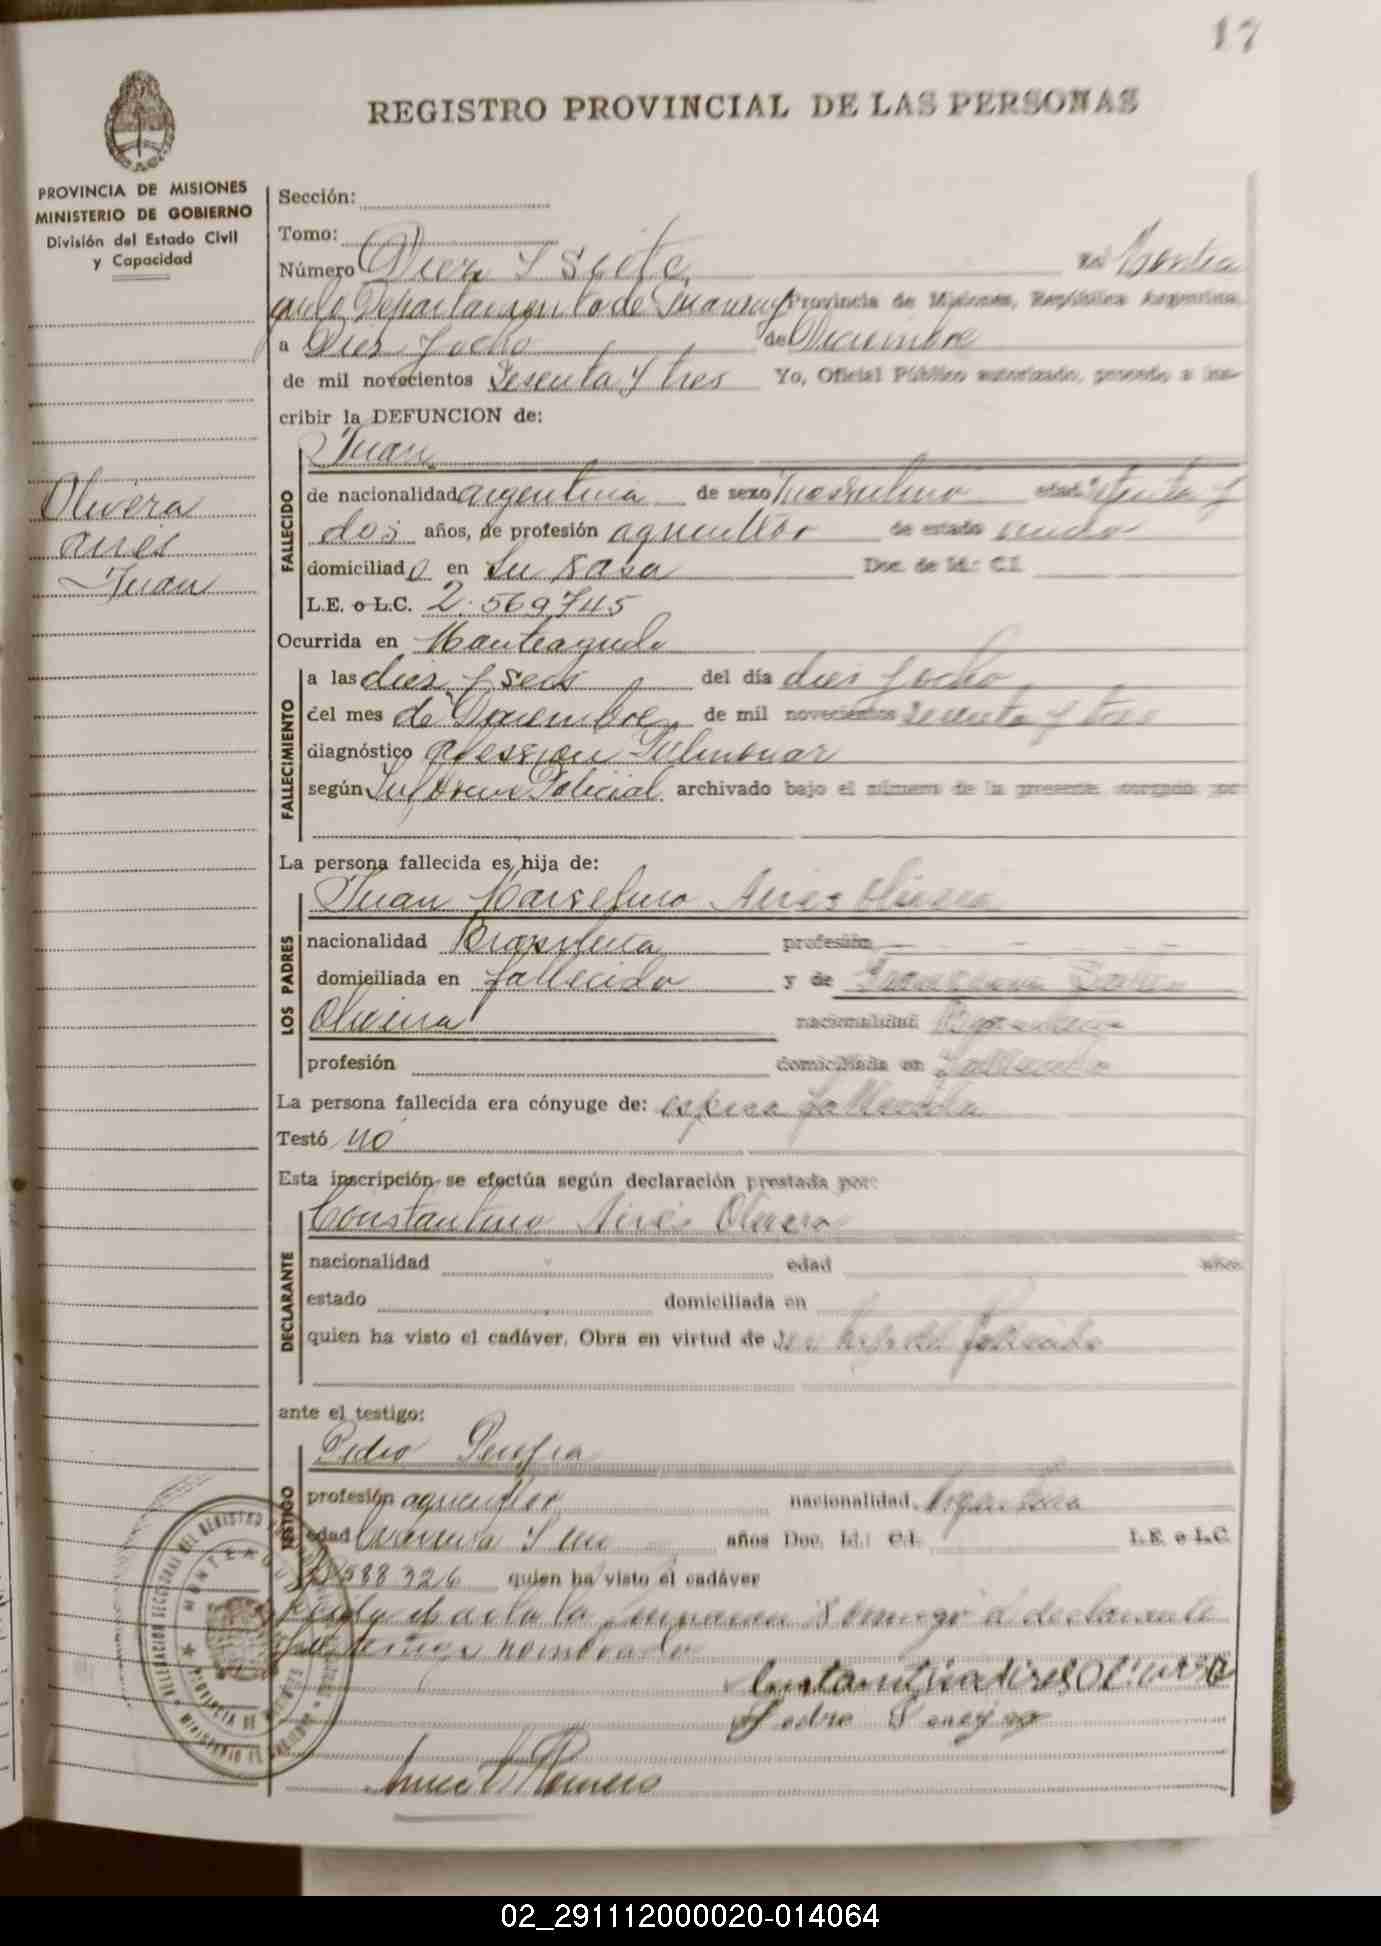 17
REGISTRO PROVINCIAL DE LAS PERSONAS
PROVINCIA DE MISIONES
MINISTERIO DE GOBIERNO
División del Estado Civil
y Capacidad
Olivera
aires
Juan
Sección:
Tomo:
Número Diez y siete en Montea
gudo Departamento de Provincia de Misiones, República Argentina,
a Diez y ocho de Diciembre
de mil novecientos sesenta y tres Yo, Oficial Público autorizado, procedo a ins-
cribir la DEFUNCION de:
Juan
FALLECIDO
de nacionalidad argentina de sexo masculino edad y
dos años, de profesión agricultor de estado viudo
domiciliado en su casa Doc. de Id.: C.I.
L.E. o L.C. 2.569745
Ocurrida en Monteagudo
FALLECIMIENTO
a las diez y seis del día diez y ocho
del mes de Diciembre de mil novecientos sesenta y tres
diagnóstico Pulmonar
según Informe Policial archivado bajo el número de la presente, otorgado por
La persona fallecida es hija de:
LOS PADRES
Juan Marselino Aires Olivera
nacionalidad Brasileña profesión
domiciliada en fallecido y de
Oliveira nacionalidad
profesión domiciliada en fallecida
La persona fallecida era cónyuge de: esposa fallecida
Testó no
Esta inscripción se efectúa según declaración prestada por:
DECLARANTE
Constantino Aires Olivera
nacionalidad edad años
estado domiciliada en
quien ha visto el cadáver. Obra en virtud de ser hijo del fallecido
ante el testigo:
TESTIGO
Pedro
profesión agricultor nacionalidad Argentina
edad años Doc. Id.: C.I. L.E. o L.C.
588326 quien ha visto el cadáver
Leída el acta la conmigo el declarante
y el testigo nombrado
Pedro